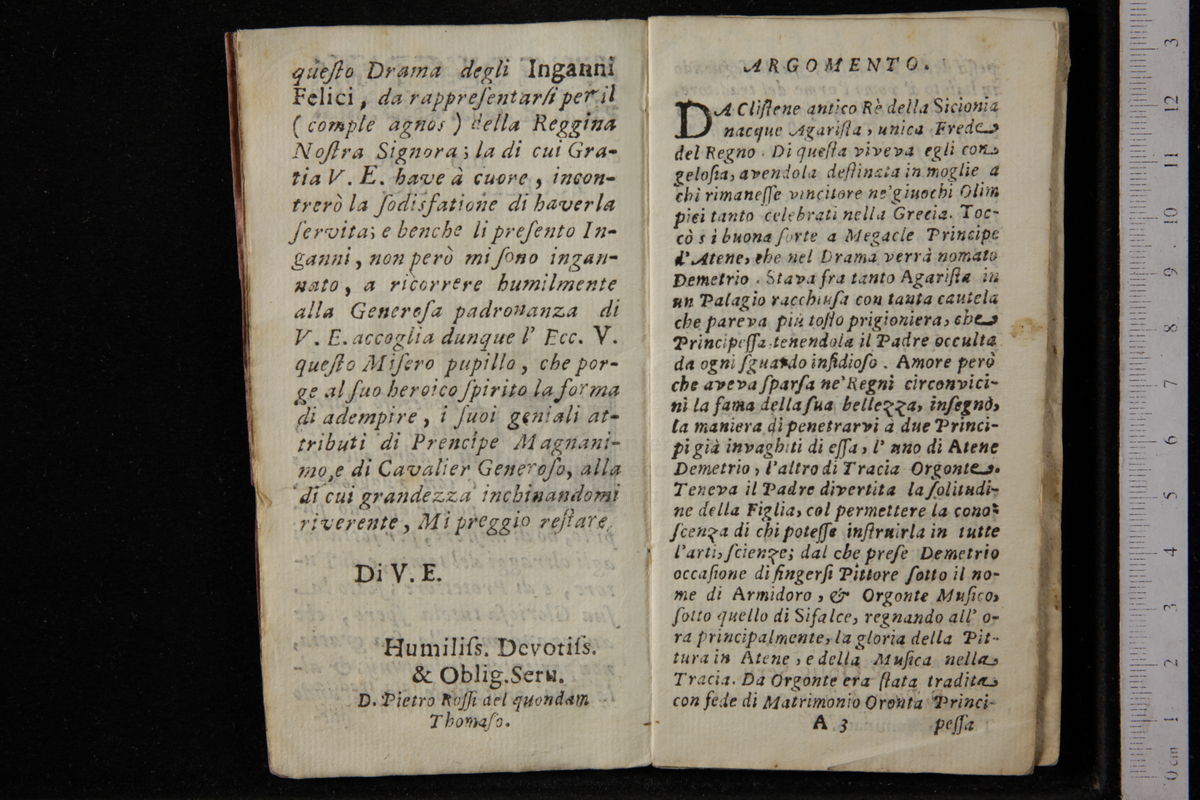 queſto Drama degli Inganni
Felici, da rappreſentarſi per il
( comple agnos ) della Reggina
Noſtra Signora; la di cui Gra-
tia V. E. have à cuore, incon-
trerò la ſodisfatione di haverla
ſervita; e benche li preſento In-
ganni, non però mi ſono ingan-
nato, a ricorrere humilmente
alla Generoſa padronanza di
V. E. accoglia dunque l' Ecc. V.
queſto Miſero pupillo, che por-
ge al ſuo heroico ſpirito la forma
di adempire, i ſuoi geniali at-
tributi di Prencipe Magnani-
mo, e di Cavalier Generoſo, alla
di cui grandezza inchinandomi
riverente, Mi preggio reſtare
Di V. E.
Humiliſs. Devotiſs.
& Oblig. Seru.
D. Pietro Roſſi del quondam
Thomaſo.
ARGOMENTO.
DA Cliſtene antico Rè della Sicionia
nacque Agariſta, unica Frede
del Regno. Di queſta viveva egli con
geloſia, avendola deſtinata in moglie a
chi rimaneſſe vincitore ne' giuochi Olim
pici tanto celebrati nella Grecia. Toc-
cò sì buona ſorte a Megacle Principe
d'Atene, che nel Drama verrà nomato
Demetrio. Stava fra tanto Agariſta in
un Palagio racchiuſa con tanta cautela
che pareva più toſto prigioniera, che
Principeſſa tenendola il Padre occulta
da ogni ſguardo inſidioſo. Amore però
che aveva ſparſa ne' Regni circonvici-
ni la fama della ſua bellezza, inſegnò,
la maniera di penetrarvi à due Princi-
pi già invaghiti di eſſa, l' uno di Atene
Demetrio, l'altro di Tracia Orgonte.
Teneva il Padre divertita la ſolitudi-
ne della Figlia, col permettere la cono-
ſcenza di chi poteſſe inſtruirla in tutte
l'arti, ſcienze; dal che preſe Demetrio
occaſione di fingerſi Pittore ſotto il no-
me di Armidoro, & Orgonte Muſico,
ſotto quello di Sifalce, regnando all' o-
ra principalmente, la gloria della Pit-
tura in Atene, e della Muſica nella
Tracia. Da Orgonte era ſtata tradita
con fede di Matrimonio Oronta Princi-
A 3 peſſa
0 cm 1 2 3 4 5 6 7 8 9 10 11 12 3